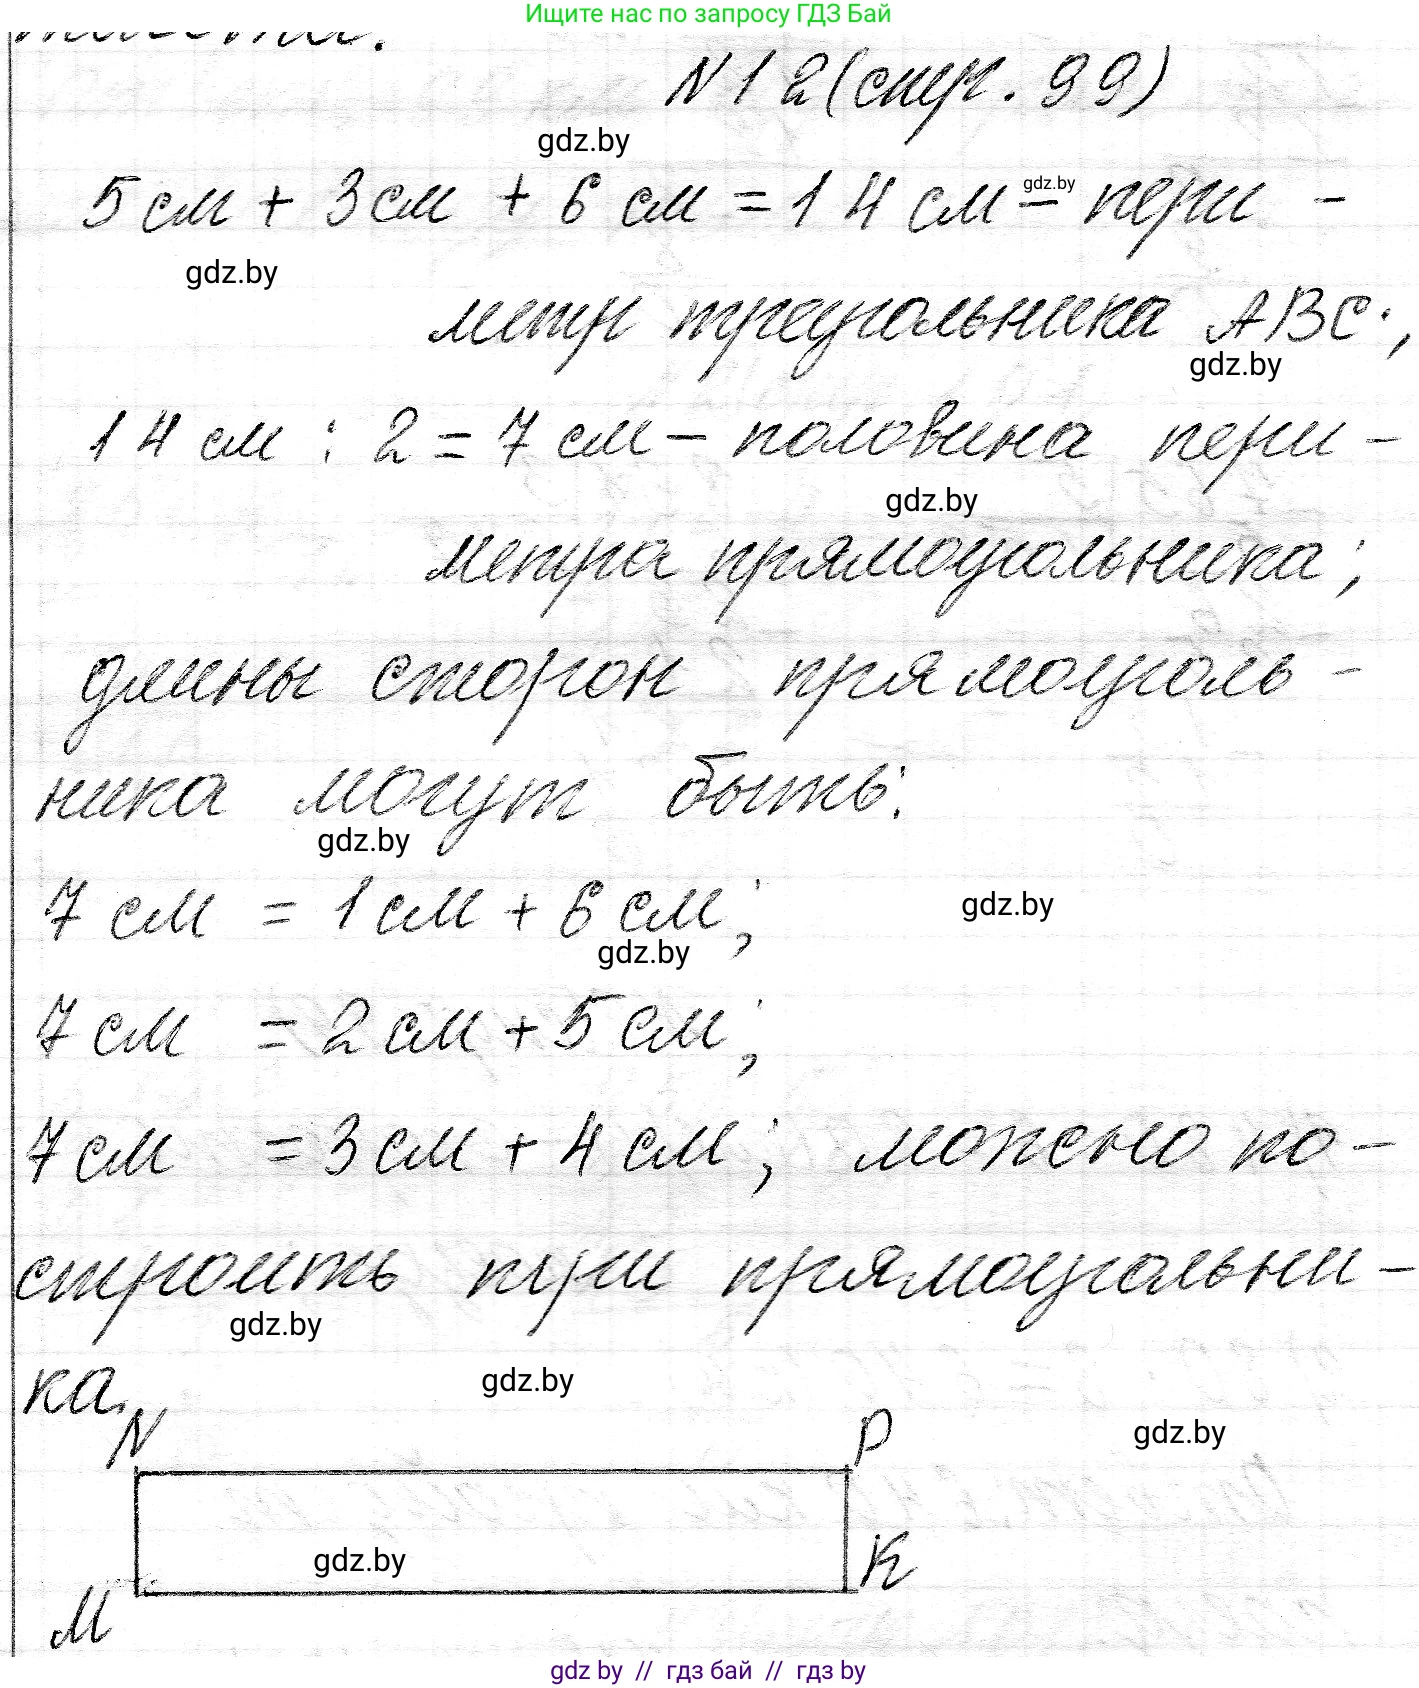 Ищите нас по запросу ГДЗ Бай
N12(стр. 99)
gdz.by
5см + 3см + 6 см = 14 см – пери -
gdz.by
gdz.by
метр треугольника ABC;
gdz.by
14 см : 2 = 7 см – половина пери –
gdz.by
метра прямоугольника;
длины сторон прямоуголь -
ника могут быть:
gdz.by
7 см = 1см + 6 см;
gdz.by
gdz.by
7см = 2см + 5см;
7см = 3см + 4 см; можно по-
строить три прямоугольни-
gdz.by
ка.
gdz.by
N
P
gdz.by
gdz.by
K
M
gdz by // гдз бай // гдз by